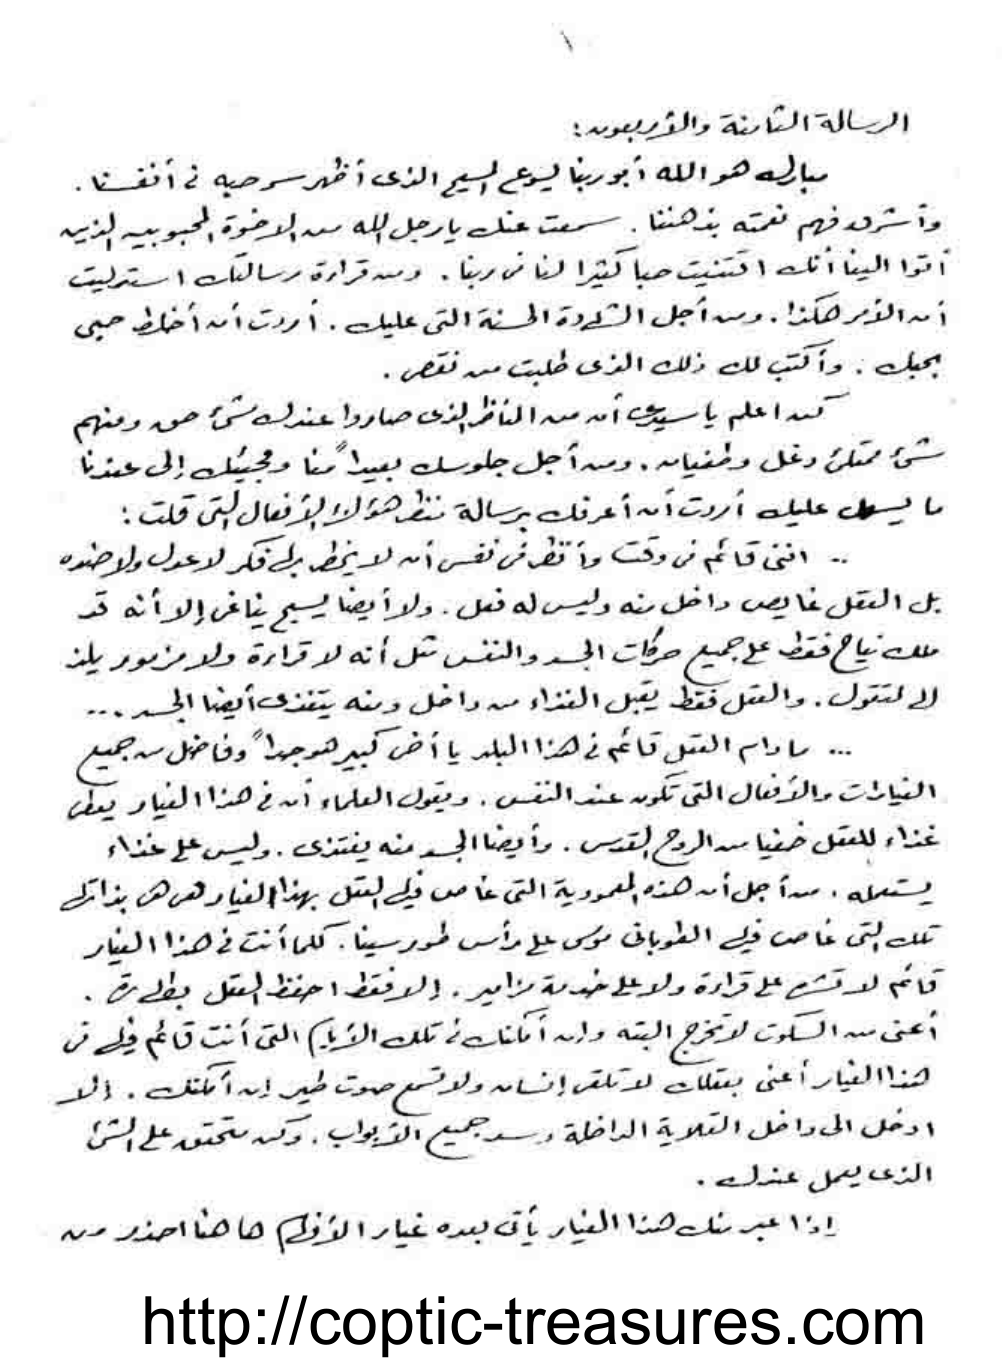 ١
الرسالة الثامنة والأربعون:
مبارك هو الله أبو ربنا يسوع المسيح الذى أظهر سر حبه فى أنفسنا.
وأشرق فهم نعمته بذهننا. سمعت عنك يا رجل الله من الاخوة المحبوبين الذين
أتوا الينا أنك اقتنيت حبا كثيرا لنا فى ربنا. ومن قراءة رسالتك استدليت
أن الأمر هكذا. ومن أجل الشهادة الحسنة التى عليك. أردت أن أخلط حبى
بحبك. وأكتب لك ذلك الذى طلبت من نقصى.
لكن اعلم يا سيدى أن من المناظر الذى صاروا عندك شئ حق ومنهم
شئ ممتلئ دغل وطغيان. ومن أجل جلوسك بعيداً منا ومجيئك إلى عندنا
ما يسهل عليك أردت أن أعرفك برسالة منظر هؤلاء الأفعال التى قلت:
.. اننى قائم فى وقت وأنظر فى نفسى أن لا يخطر لى فكر لا عدل ولا ضده
بل العقل غايص داخل منه وليس له فعل. ولا أيضا يسبح يناغى إلا أنه قد
ملك نياح فقط على جميع حركات الجسد والنفس مثل أنه لا قراءة ولا مزمور يلذ
لى لتقول. والعقل فقط يقبل الغذاء من داخل ومنه يتغذى أيضا الجسد...
... مادام العقل قائم فى هذا البلد يا أخى كبير هو جداً وفاضل من جميع
الغيارات والأفعال التى تكون عند النفس. ويقول العلماء أن فى هذا الغيار يعطى
غذاء للعقل خفيا من الروح القدس. وأيضا الجسد منه يغتذى. وليس على غذاء
يستعمله. من أجل أن هذه المعمودية التى غاص فيها العقل بهذا الغيار هى هى بذاتها
تلك التى غاص فيها الطوبانى موسى على رأس طور سينا. كلما أنت فى هذا الغيار
قائم لا تشره على قراءة ولا على خدمة مزامير. إلا فقط احفظ العقل بطهارة.
أعنى من السكوت لا تخرج البته وإن أمكنك فى تلك الأيام التى أنت قائم فيها فى
هذا الغيار أعنى بعقلك لا تلقى إنسان ولا تسمع صوت طير إن أمكنك. إلا
ادخل الى داخل القلاية الداخلة وسد جميع الأبواب. وكن متحقق على الشئ
الذى يعمل عندك.
إذا عبر منك هذا الغيار يأتى بعده غيار الأفهام ها هنا احذر من
http://coptic-treasures.com